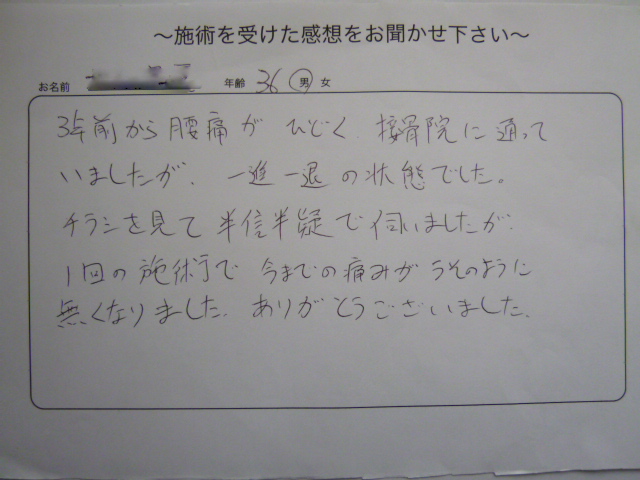 ～施術を受けた感想をお聞かせ下さい～
お名前 年齢 36 男 女
3年前から腰痛がひどく、接骨院に通って
いましたが、一進一退の状態でした。
チラシを見て半信半疑で伺いましたが、
1回の施術で今までの痛みがうそのように
無くなりました。ありがとうございました。